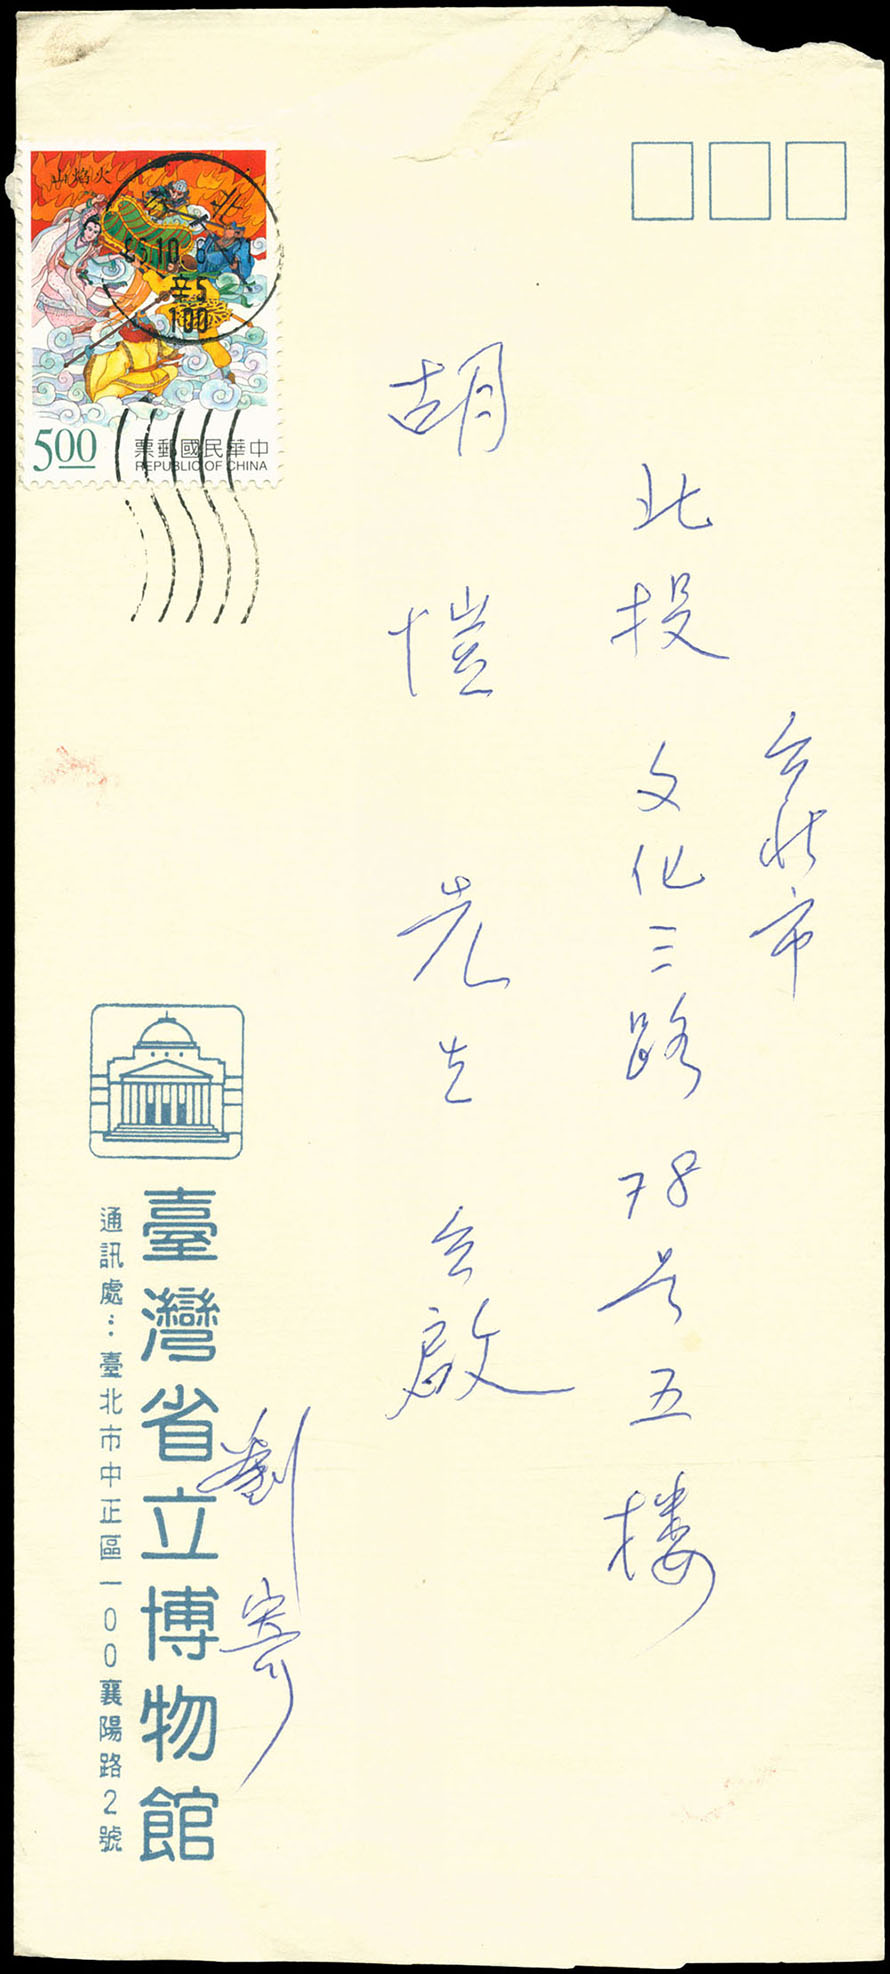 台北市
北投文化三路78号五楼
胡愷先生台啟
劉寄
臺灣省立博物館
通訊處：臺北市中正區一00襄陽路2號
火焰山
北
85.10.6
辛5
100
5.00
中華民國郵票
REPUBLIC OF CHINA